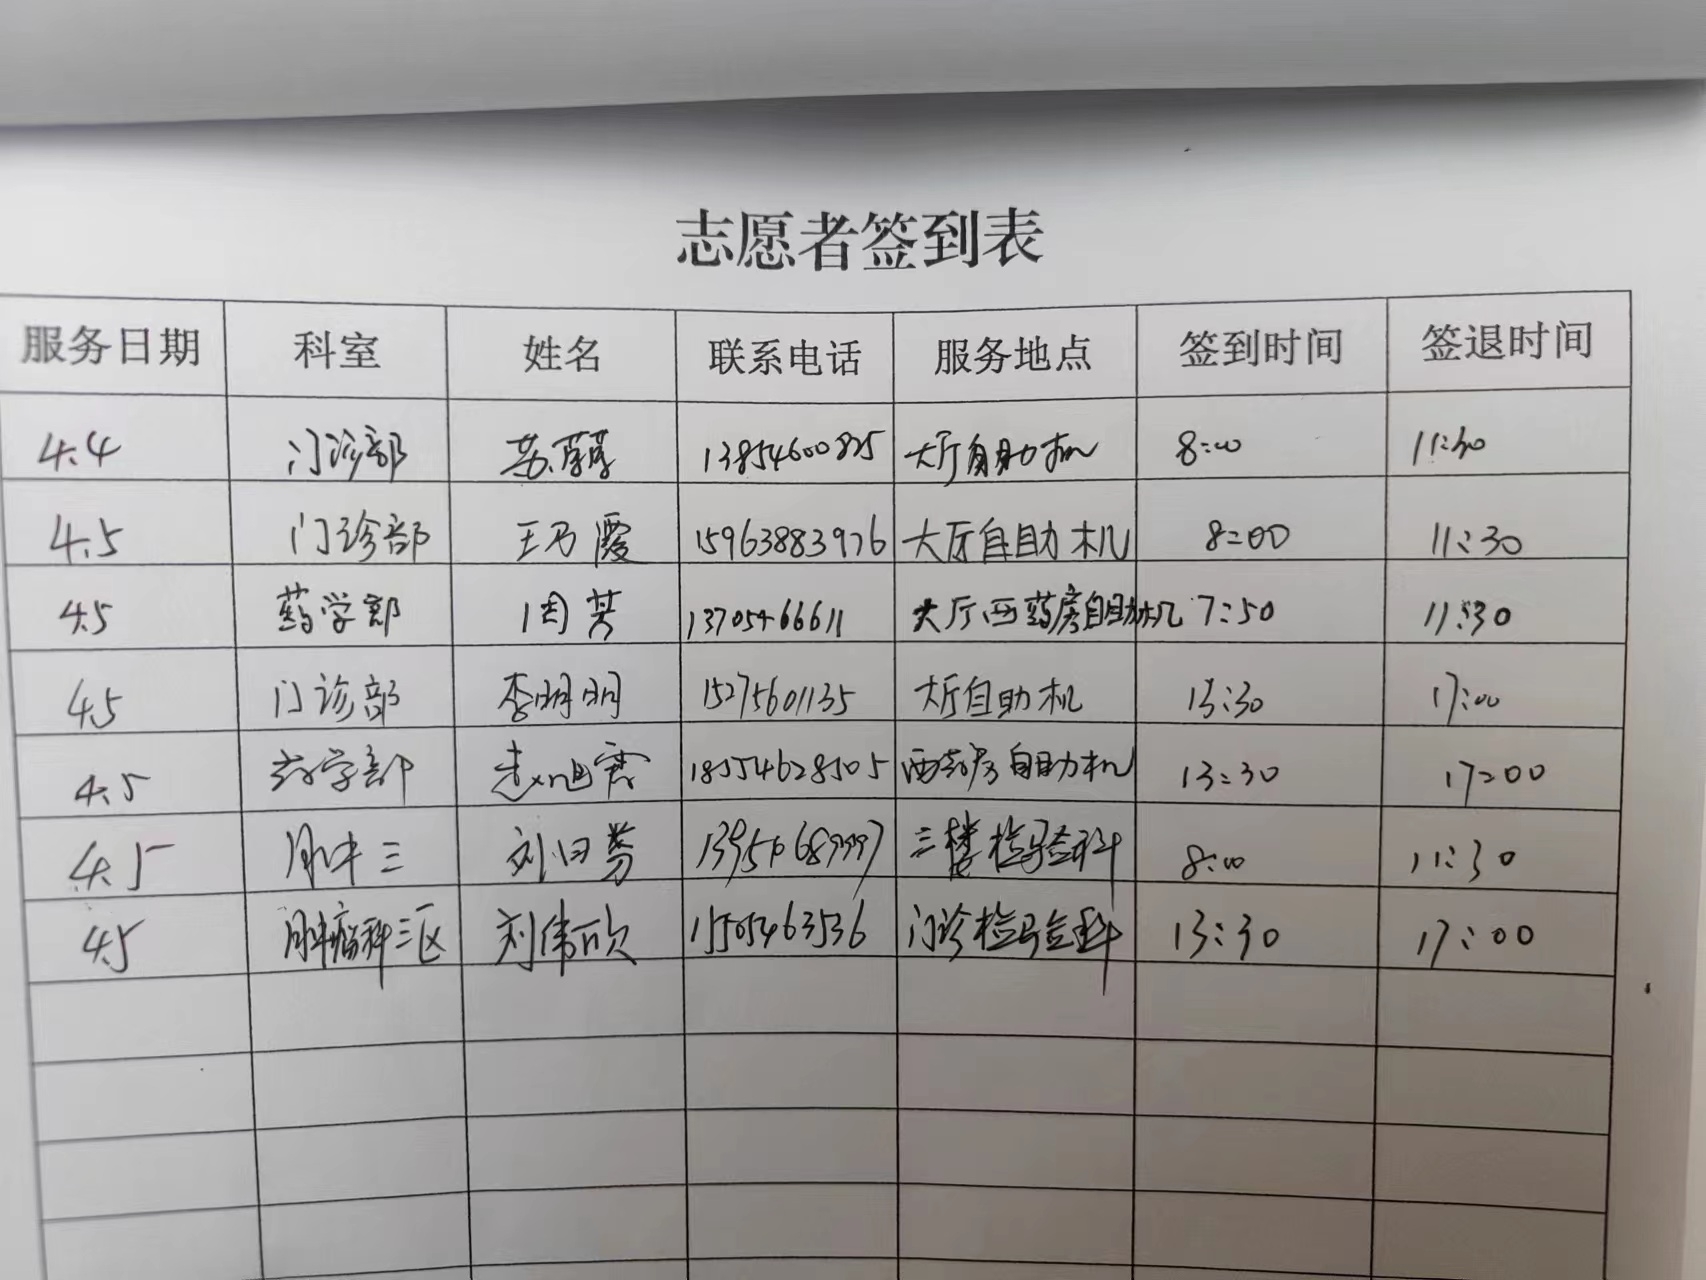 志愿者签到表
服务日期 科室 姓名 联系电话 服务地点 签到时间 签退时间
4.4 门诊部 苏 13854600825 大厅自助机 8:00 11:30
4.5 门诊部 王乃霞 15963883976 大厅自助机 8:00 11:30
4.5 药学部 周芳 13705466611 大厅西药房自助机 7:50 11:30
4.5 门诊部 李明明 15275601135 大厅自助机 13:30 17:00
4.5 药学部 赵旭霞 18554628505 西药房自助机 13:30 17:00
4.5 肿三 刘 三楼检验科 8:00 11:30
4.5 肿瘤科三区 刘伟欣 15505463536 门诊检验科 13:30 17:00